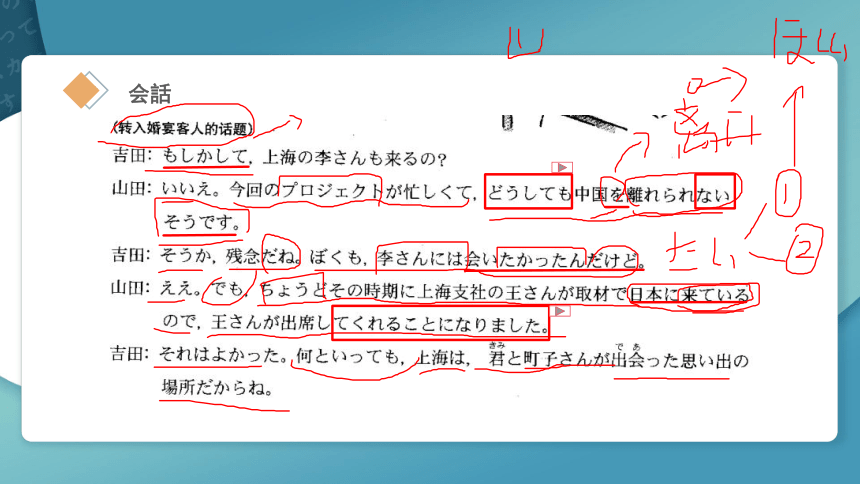 会話
（转入婚宴客人的话题）
吉田：もしかして，上海の李さんも来るの？
山田：いいえ。今回のプロジェクトが忙しくて，どうしても中国を離れられない
そうです。
吉田：そうか，残念だね。ぼくも，李さんには会いたかったんだけど。
山田：ええ。でも，ちょうどその時期に上海支社の王さんが取材で日本に来ている
ので，王さんが出席してくれることになりました。
吉田：それはよかった。何といっても，上海は，君と町子さんが出会った思い出の
きみ
であ
場所だからね。
ほしい
たい
①
②